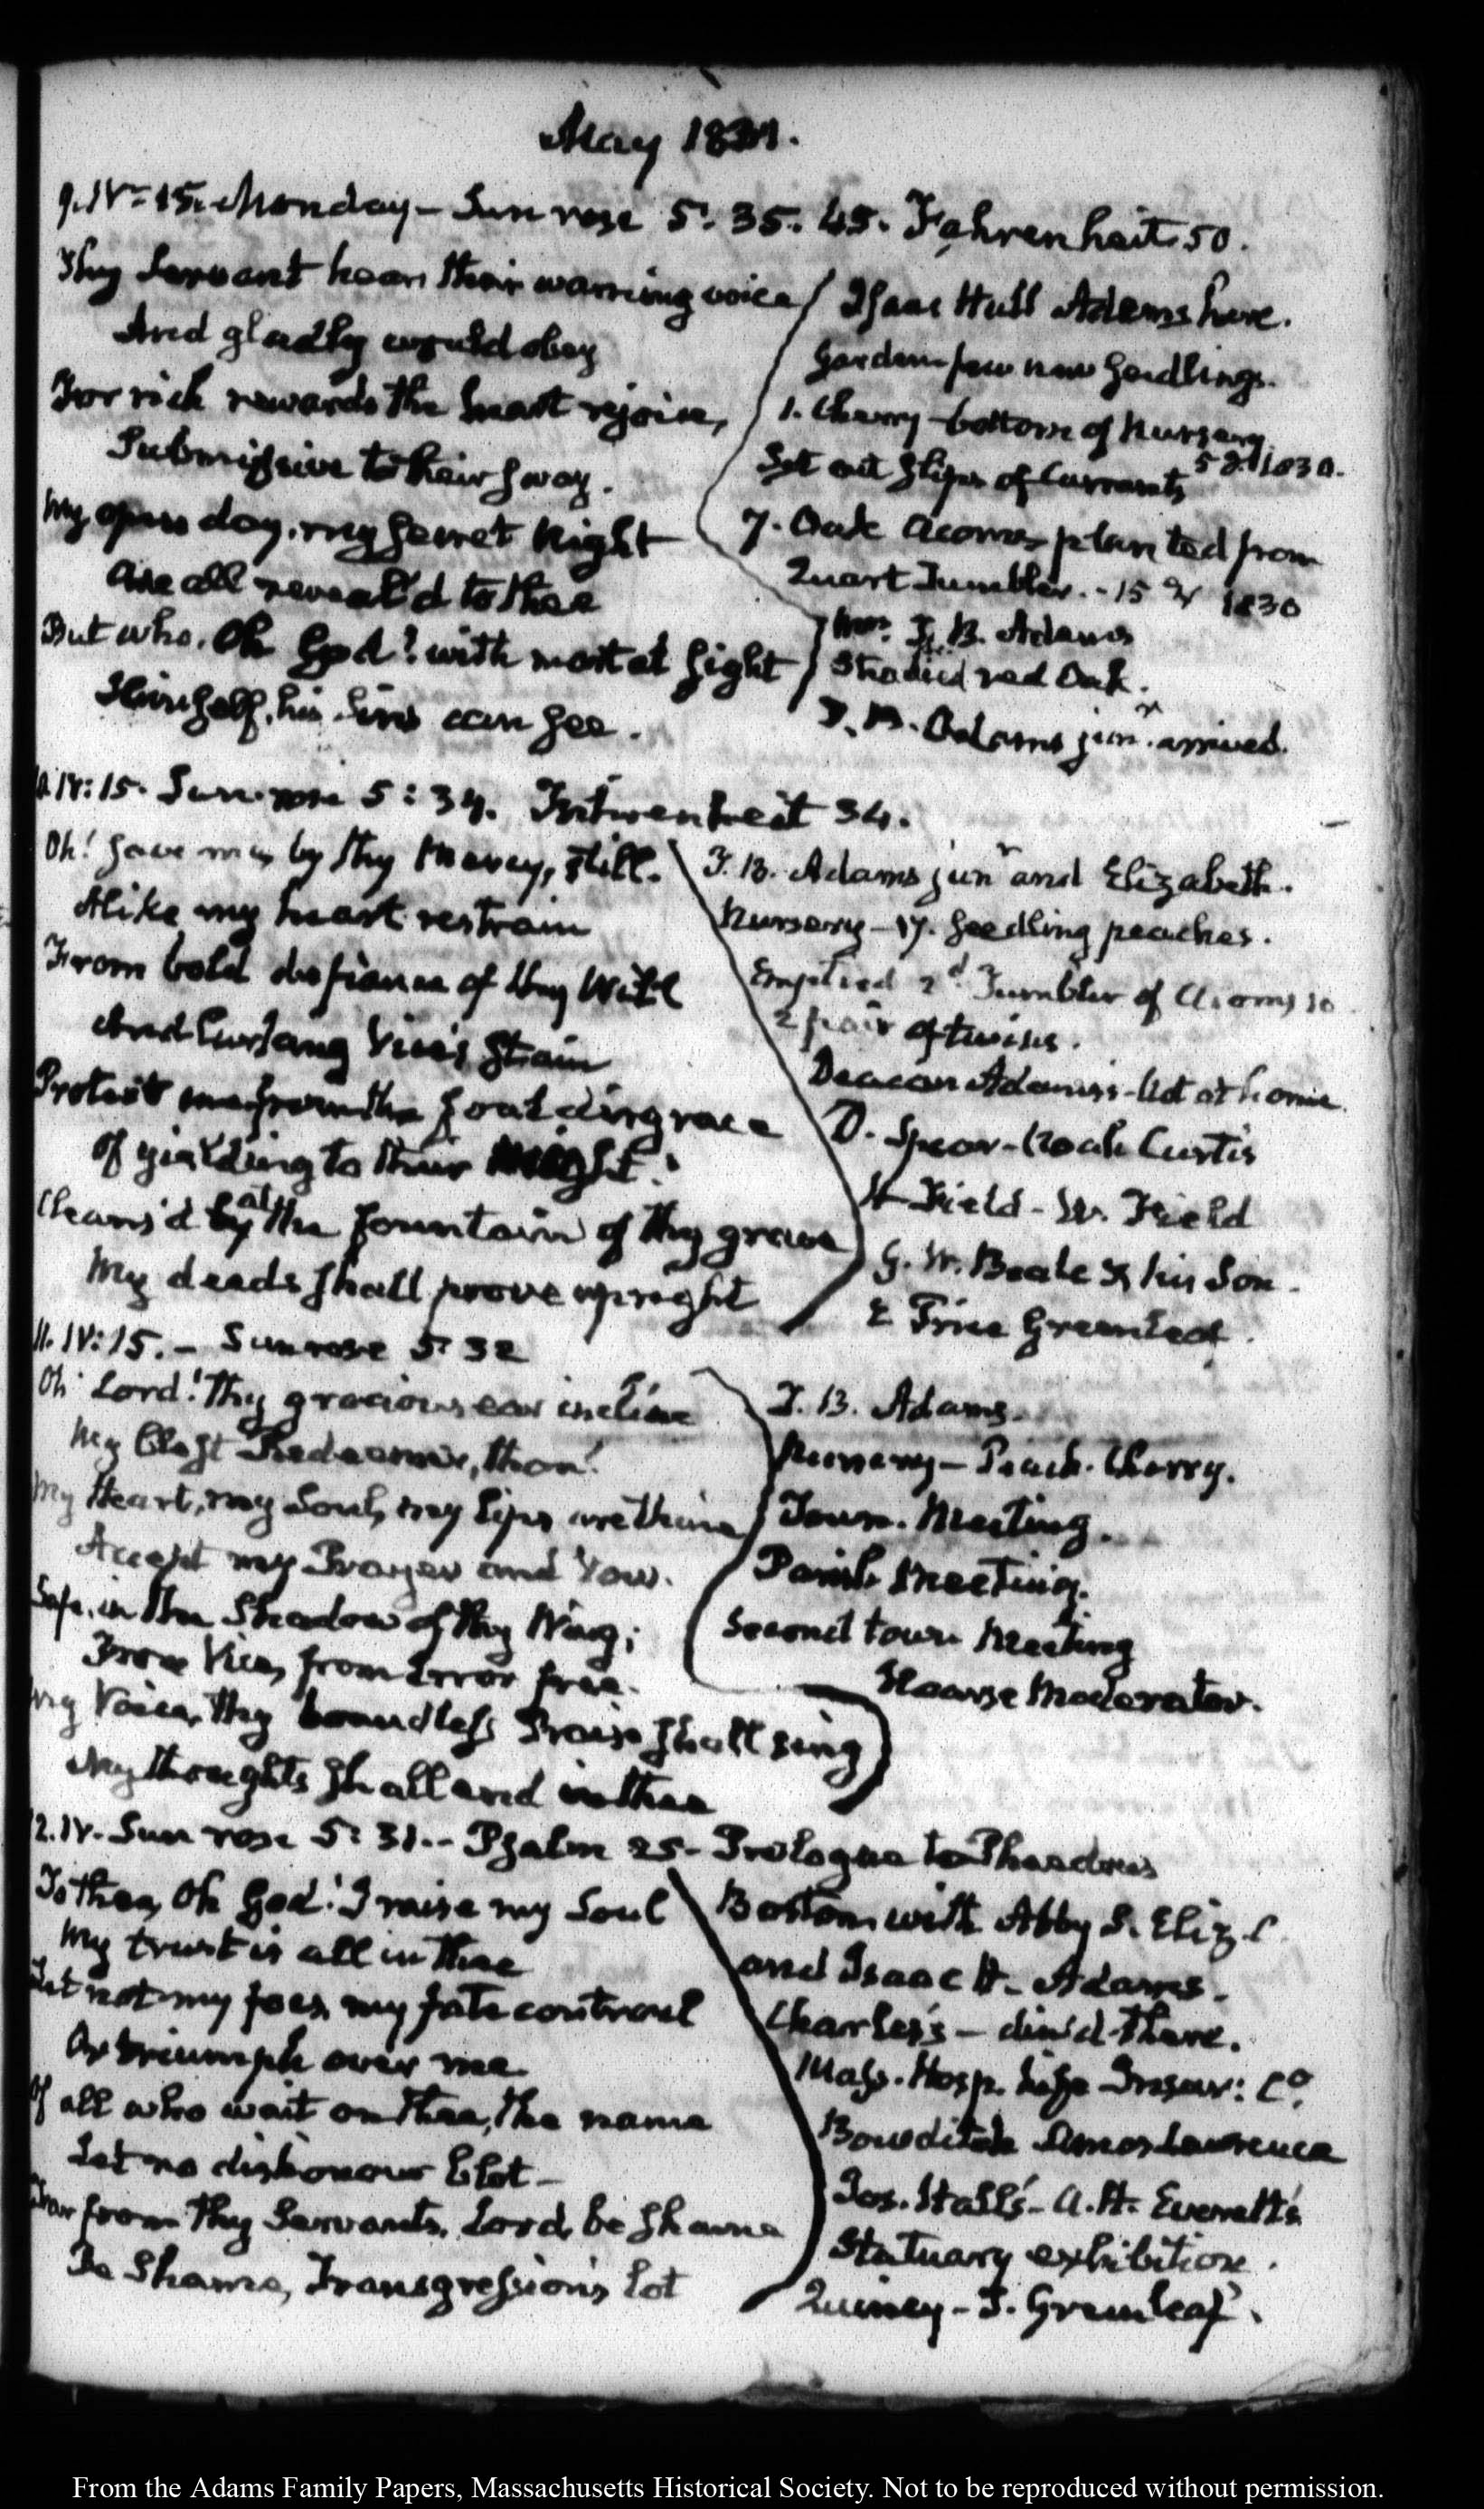 May 1831.
9. IV: 15. Monday – Sun rose 5: 35. 45. Fahrenheit 50.
Thy Servant hears their warning voice
And gladly would obey
For rich rewards the heart rejoice,
Submissive to their sway.
My open day, my secret Night
Are all reveal'd to thee
But who, Oh God! with mortal sight
Himself, his sins can see.
Isaac Hull Adams here.
Garden few new Seedlings.
1. Cherry – bottom of Nursery
Set out slips of Currants
7. Oak acorns planted from
Quart Tumbler. - 15 1830
Mrs. T. B. Adams
Shadied red Oak.
T. B. Adams junr. arrived.
10. IV: 15. Sun rose 5: 34. Fahrenheit 54.
Oh! save me by thy Mercy, still.
Alike my heart restrain
From bold defiance of thy Will
And lurking Vice's stain
Protect me from the foul disgrace
Of yielding to their Might:
Cleans'd by at the fountain of thy grace
My deeds shall prove upright
T. B. Adams junr and Elizabeth.
Nursery – 17. Seedling peaches.
Emptied 2d Tumbler of Acorns 10
2 pair of twins.
Deacon Adams's - Not at home
D. Spear – Noah Curtis
H Field – W. Field
G. W. Beale & his Son
& Greenleaf.
11. IV: 15. – Sun rose 5: 32
Oh Lord! Thy gracious ear incline
My blest Redeemer, thou!
My Heart, my Soul, my lips are thine
Accept my Prayer and Vow.
Safe, in the Shadow of thy Wing;
From Vice, from Error free.
My Voice, thy boundless Praise shall sing
My thoughts shall end in thee
T. B. Adams.
Nursery – Peach. Cherry.
Town. Meeting.
Parish Meeting.
Second town Meeting
Hoarse Moderator.
12. IV. Sun rose 5: 31. - Psalm 25 - Prologue to Phaedrus
To thee, Oh God! I raise my Soul
My trust is all in thee
Let not my foes, my fate controul
Or triumph over me.
Of all who wait on thee, the name
Let no dishonour blot –
Far from thy Servants, Lord, be shame
Be Shame, Transgression's lot
Boston with Abby S. Eliz. C.
and Isaac H. Adams.
Charles's – din'd there.
Mass. Hosp. Life Insur: Co.
Bowditch Amos Lawrence
Jos. Hall's – A. H. Everett's
Statuary exhibition.
Quincy – T. Greenleaf.
From the Adams Family Papers, Massachusetts Historical Society. Not to be reproduced without permission.